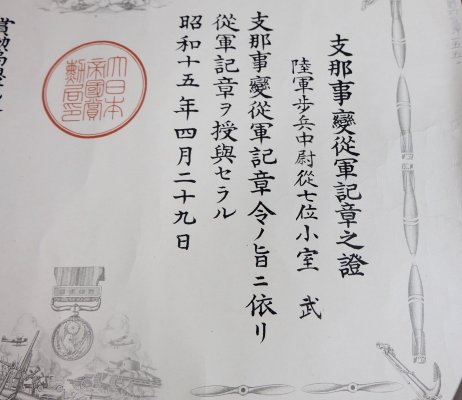 支那事變從軍記章之證
陸軍步兵中尉從七位小室 武
支那事變從軍記章令ノ旨ニ依リ
從軍記章ヲ授與セラル
昭和十五年四月二十九日
大日本
帝國賞
勳局印